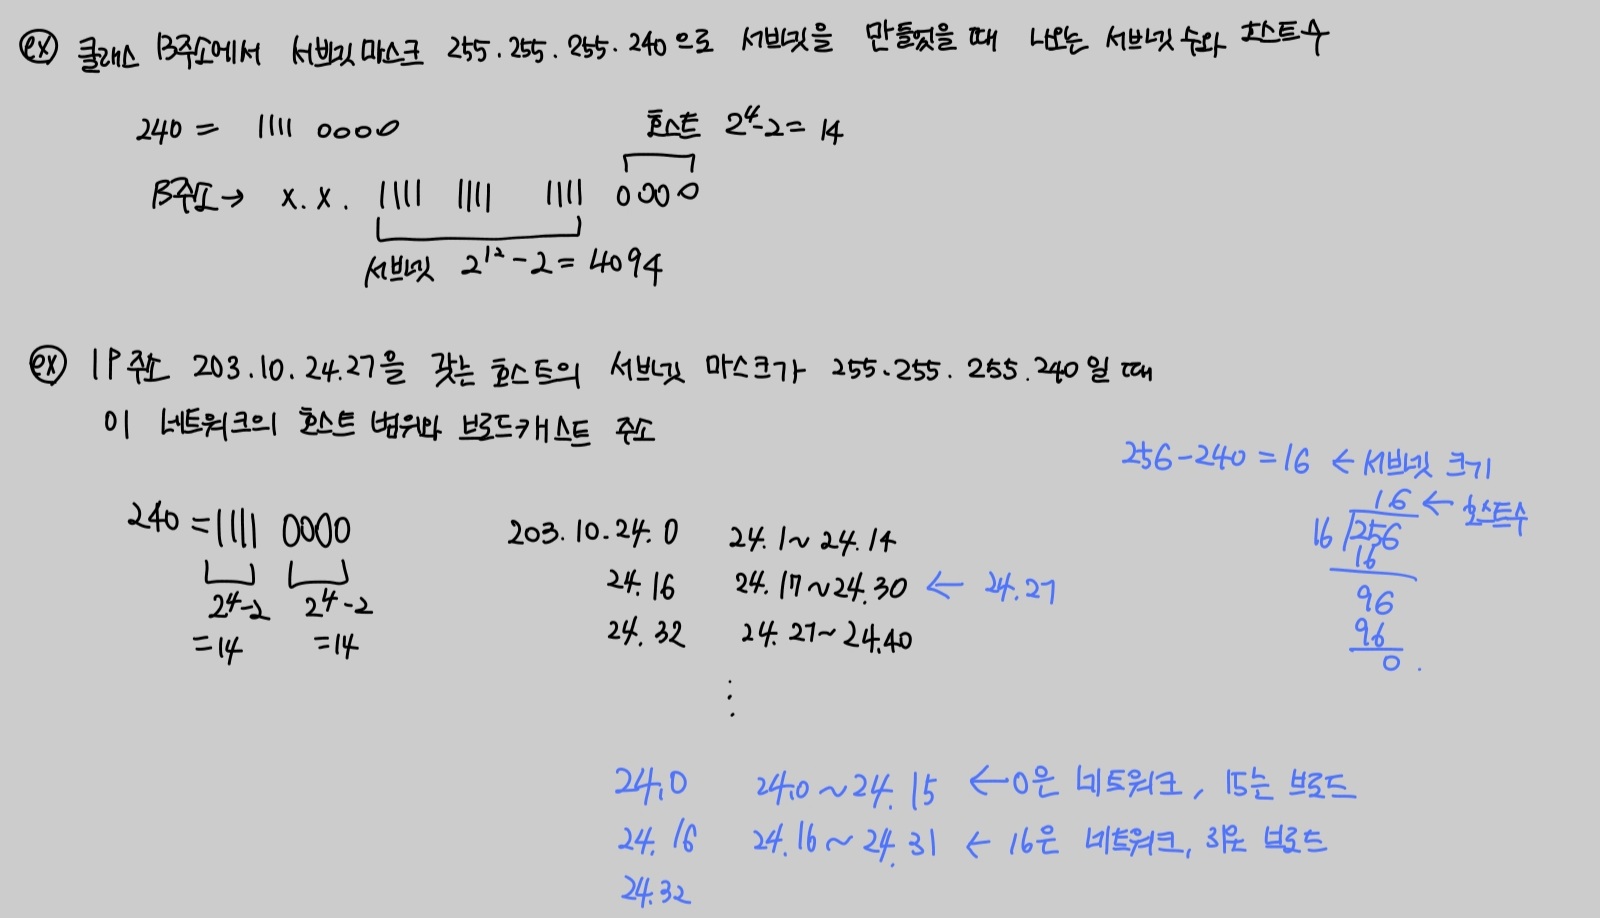 ex) 클래스 B주소에서 서브넷 마스크 255.255.255.240으로 서브넷을 만들었을 때 나오는 서브넷 수와 호스트수
240 = 1111 0000
호스트 2⁴-2 = 14
B주소 → x. x. 1111 1111 1111 0000
서브넷 2¹²-2 = 4094
ex) IP주소 203.10.24.27을 갖는 호스트의 서브넷 마스크가 255.255.255.240일 때
이 네트워크의 호스트 범위와 브로드캐스트 주소
256-240 = 16 ← 서브넷 크기
16 ← 호스트수
16 256
16
96
96
0
240 = 1111 0000
2⁴-2 2⁴-2
=14 =14
203.10.24.0 24.1~24.14
24.16 24.17~24.30 ← 24.27
24.32 24.27~24.40
⋮
24.0 24.0~24.15 ← 0은 네트워크, 15는 브로드
24.16 24.16~24.31 ← 16은 네트워크, 31은 브로드
24.32